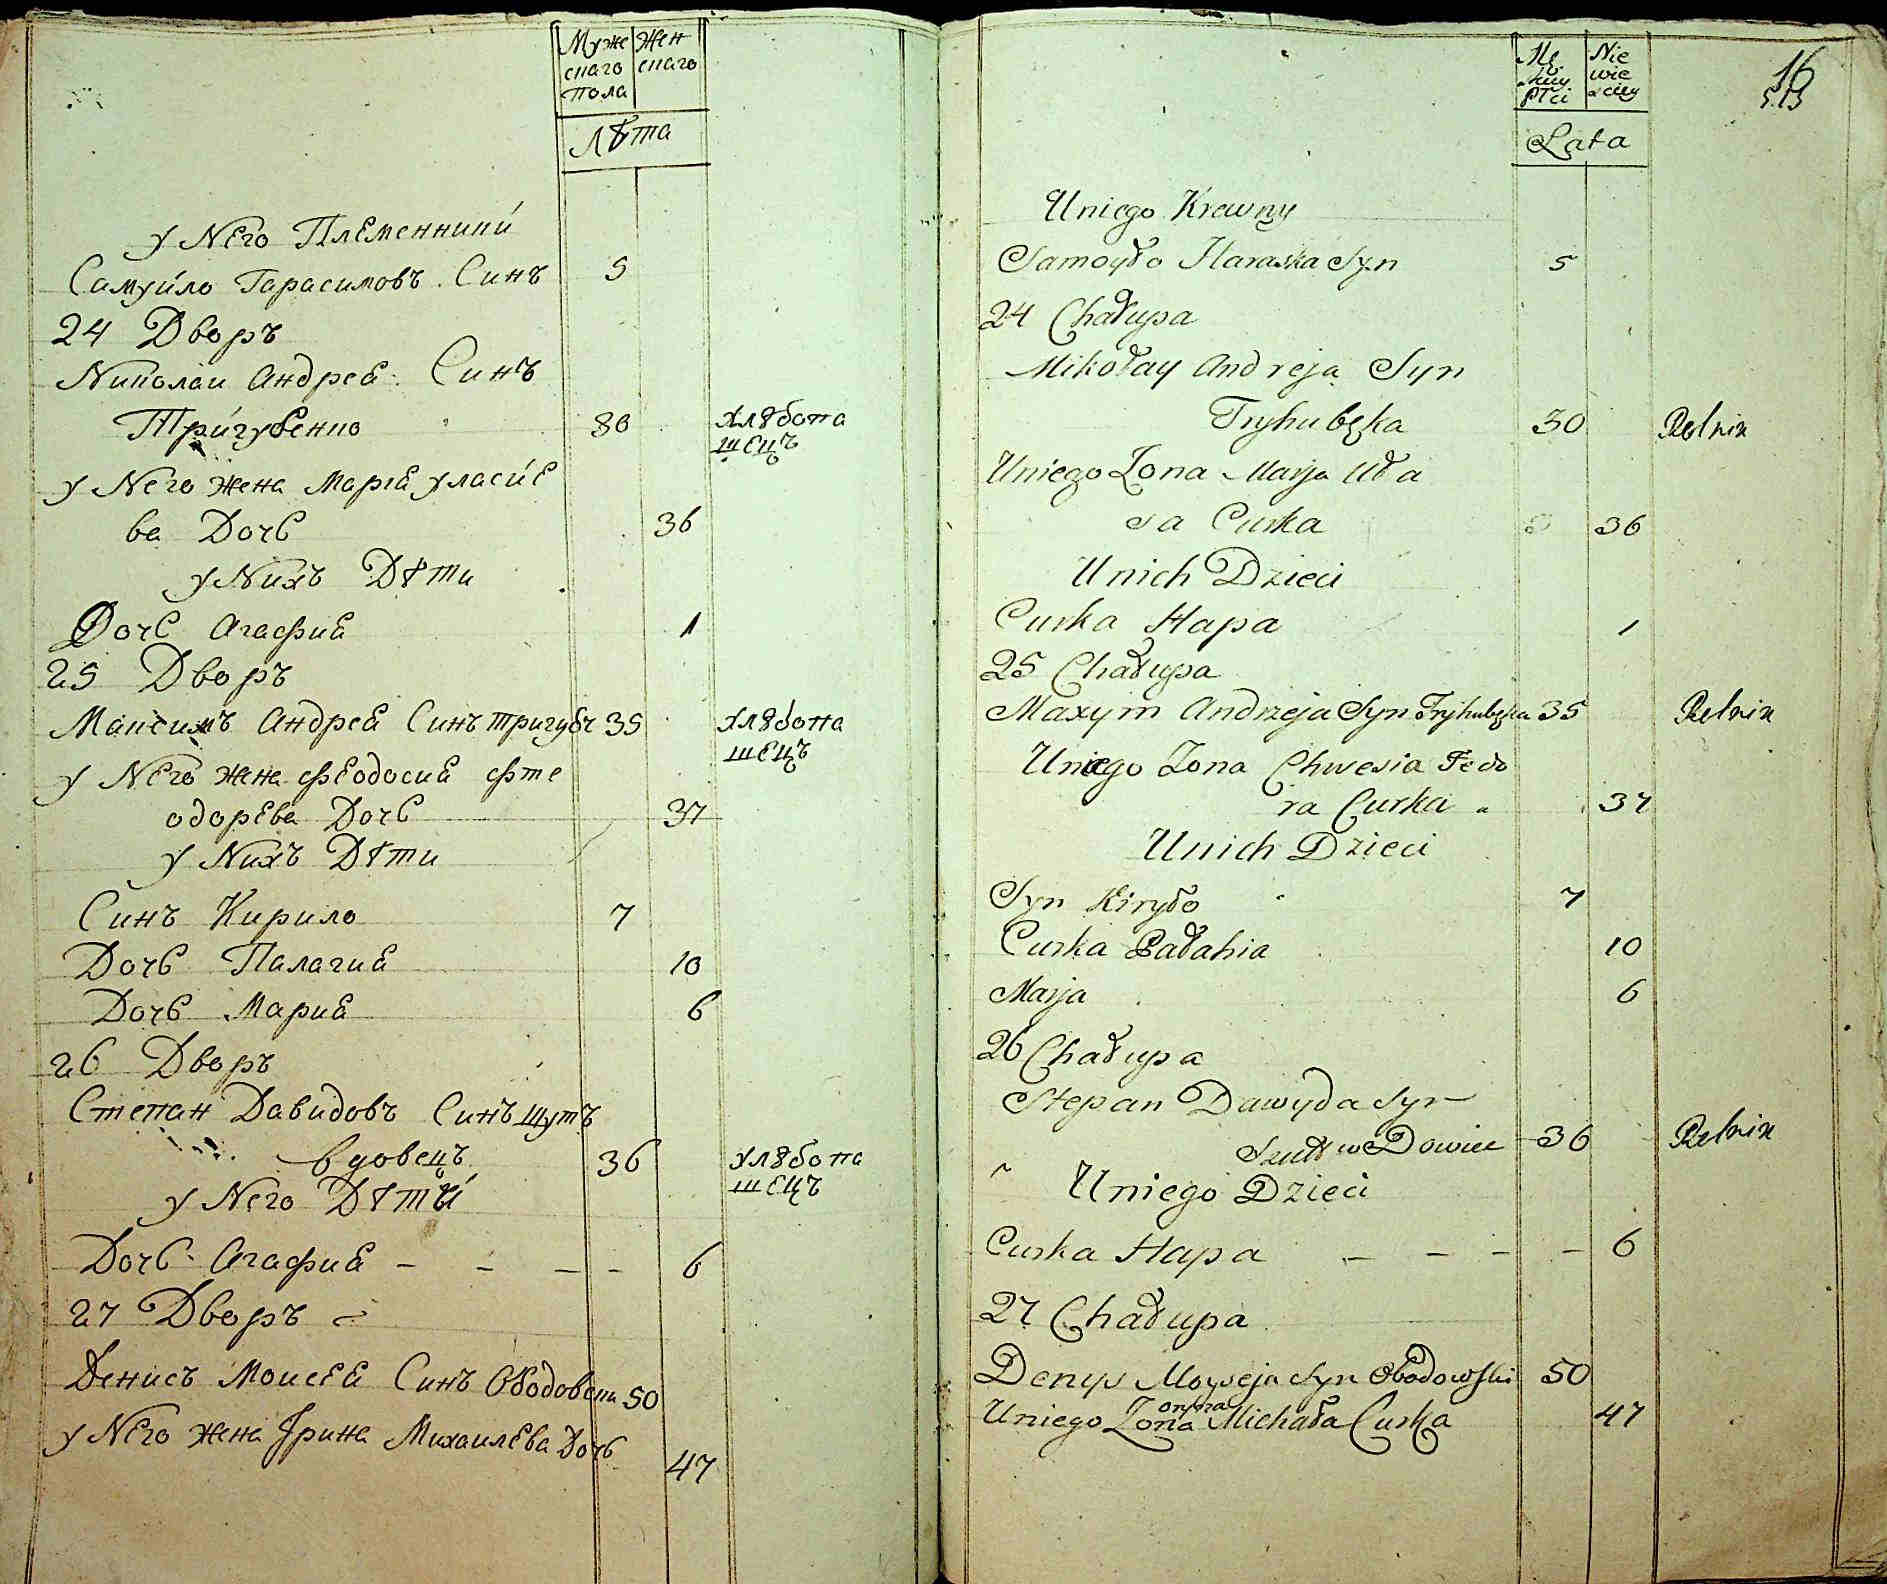 Муже Жен
скаго скаго
пола
Лѣта
у Него Племенники
Самуйло Гарасимовъ Синъ 5
24 Дворъ
Николаи Андрея Синъ
Тригубенко 30 хлѣбопа
шецъ
у Него жена Марія уласие
ва Дочь 36
у Нихъ Дѣти
Дочь Агафия 1
25 Дворъ
Максимъ Андрея Синъ тригубч 35 хлѣбопа
шецъ
у Него жена феодосия фте
одорева Дочь 37
у Нихъ Дѣти
Синъ Кирило 7
Дочь Палагия 10
Дочь Мария 6
26 Дворъ
Степан Давидовъ Синъ шутъ
вдовецъ 36 хлѣбопа
шецъ
у Него Дѣти
Дочь Агафия - - - - 6
27 Дворъ
Денисъ Моисея Синъ Ободовски 50
у Него жена Ірина Михаилева Дочь 47
Mę Nie
skiy wie
Płci sciey
Lata
16
Uniego Krewny
Samoyło Haraska Syn 5
24 Chałupa
Mikołay Andreja Syn
Tryhubęka 30 Rolnik
Uniego Zona Marja Uła
sa Curka 36
Unich Dzieci
Curka Hapa 1
25 Chałupa
Maxym Andrzeja Syn Tryhubęka 35 Rolnik
Uniego Zona Chwesia Fedo
ra Curka 37
Unich Dzieci
Syn Kiryło 7
Curka Pałahia 10
Marja 6
26 Chałupa
Stepan Dawyda Syn
Szutt wDowiec 36 Rolnik
Uniego Dzieci
Curka Hapa - - - - 6
27 Chałupa
Denys Moyseja Syn Obodowski 50
Uniego Zona oryna Michała Curka 47